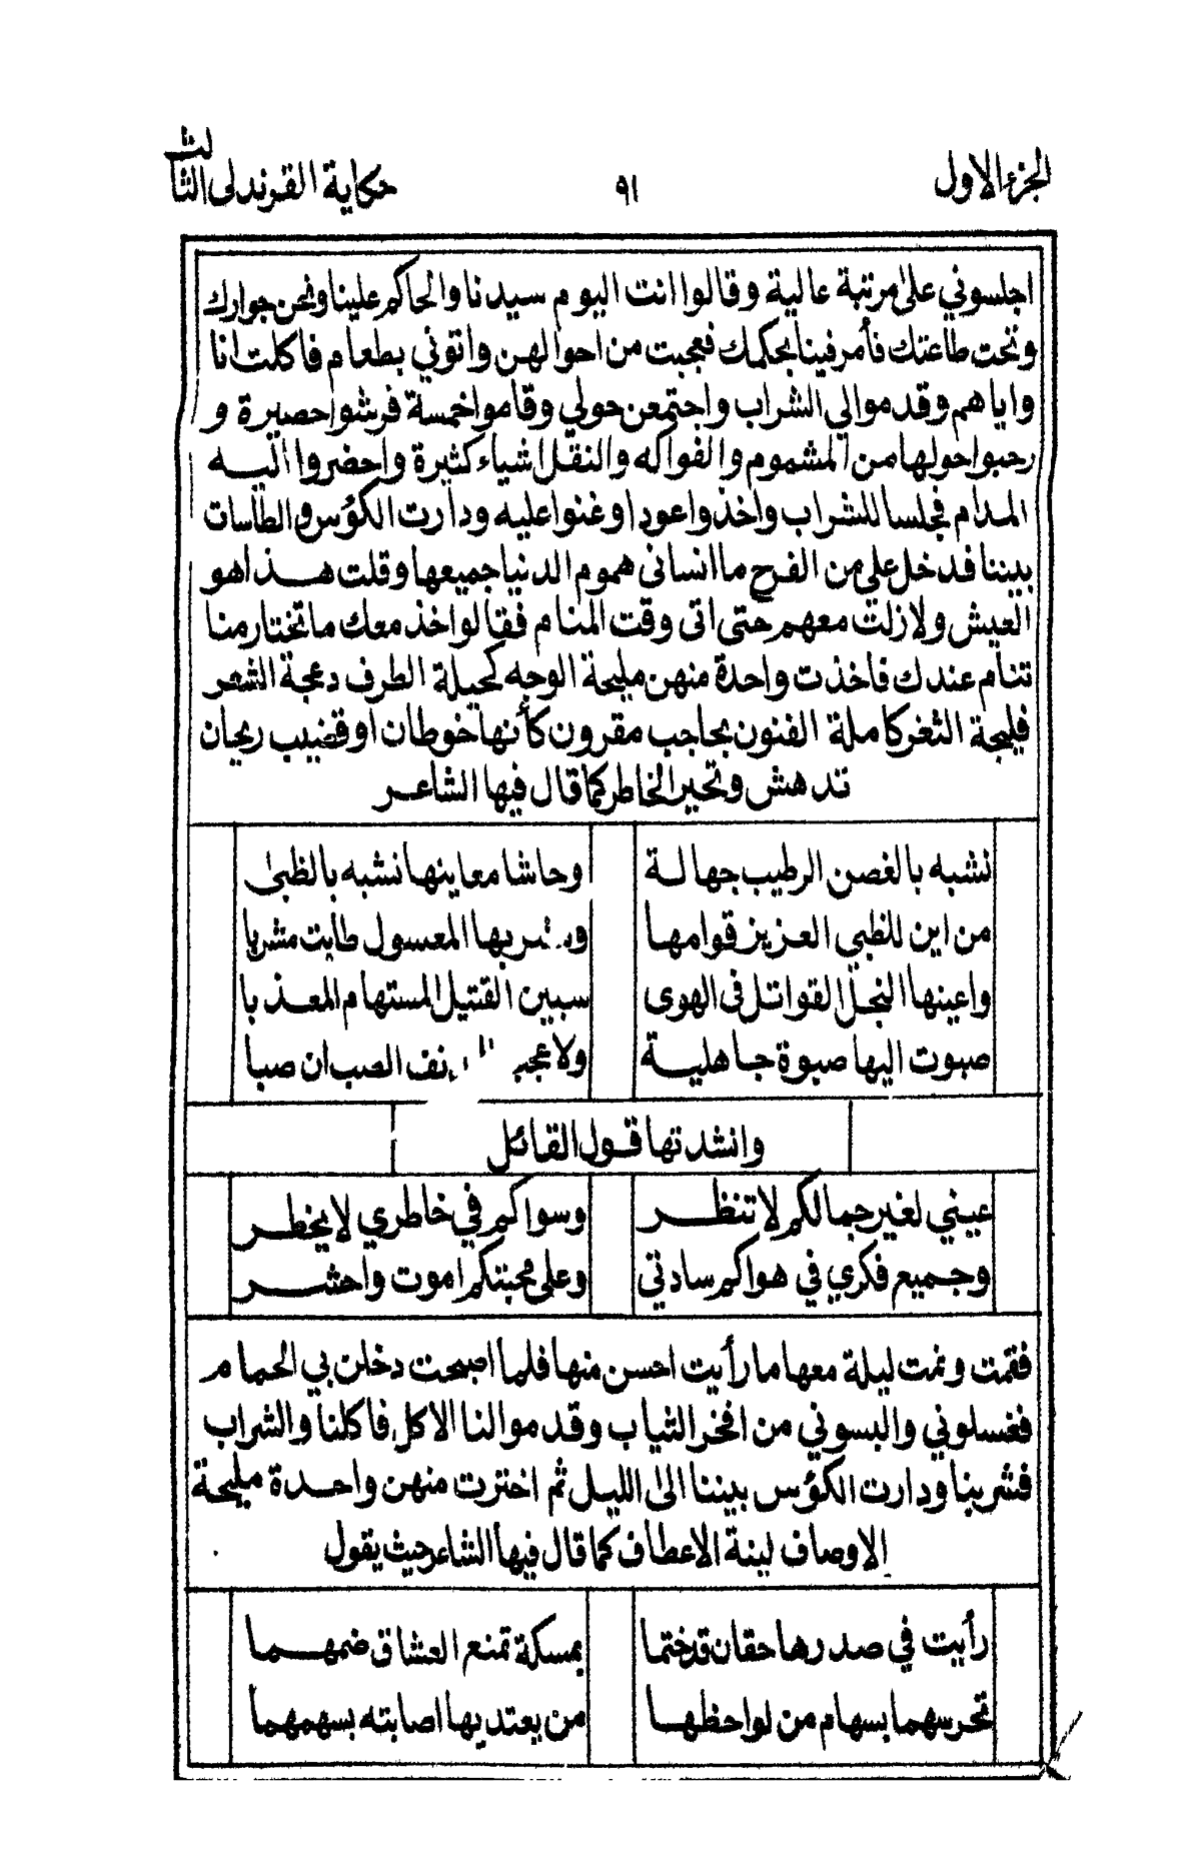 الجزء الاول ٩١ حكاية القرندلى الثالث
اجلسوني على مرتبة عالية وقالوا انت اليوم سيدنا والحاكم علينا ونحن جوارك
وتحت طاعتك فأمر فينا بحكمك فعجبت من احوالهن واتوني بطعام فاكلت انا
واياهم وقدموا لي الشراب واجتمعن حولي وقاموا خمسة فرشوا حصيرة و
رحبوا حولها من المشموم والفواكه والنقل اشياء كثيرة واحضروا اليه
المدام فجلسا للشراب واخذوا عودا وغنوا عليه ودارت الكؤس والطاسات
بيننا فدخل على من الفرح ما انسانى هموم الدنيا جميعها وقلت هذا هو
العيش ولا زلت معهم حتى اتى وقت المنام فقالوا خذ معك ما تختار منا
تنام عندك فاخذت واحدة منهن مليحة الوجه كحيلة الطرف دعجة الشعر
فليجة الثغر كاملة الفنون بحاجب مقرون كأنها خوطان او قضيب ريحان
تدهش وتحير الخاطر كما قال فيها الشاعر
نشبه بالغصن الرطيب جهالة وحاشا معاينها نشبه بالظبى
من اين للظبي العزيز قوامها المعسول طابت مشربا
واعينها النجل القواتل فى الهوى سبين القتيل المستهام المعذبا
صبوت اليها صبوة جاهلية ولا عجب الصب ان صبا
وانشدتها قول القائل
عيني لغير جمالكم لا تنظر وسواكم في خاطري لا يخطر
وجميع فكري في هواكم سادتي وعلى محبتكم اموت واحشر
فقمت ونمت ليلة معها ما رأيت احسن منها فلما اصبحت دخلن بي الحمام
فغسلوني والبسوني من افخر الثياب وقدموا لنا الاكل فاكلنا والشراب
فشربنا ودارت الكؤس بيننا الى الليل ثم اخترت منهن واحدة مليحة
الاوصاف لينة الاعطاف كما قال فيها الشاعر حيث يقول
رأيت في صدرها حقان قد ختما بمسكة تمنع العشاق ضمهما
تحرسهما بسهام من لواحظها من يعتد بها اصابته بسهمهما